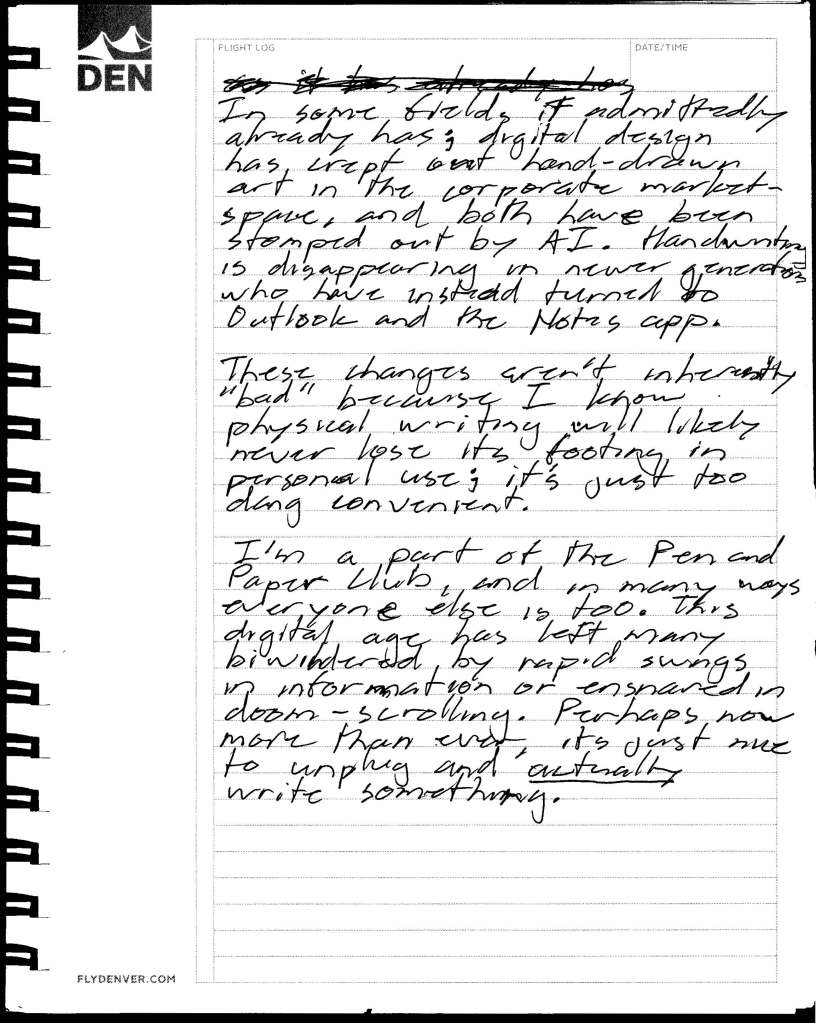 DEN
FLIGHT LOG
DATE/TIME
as it has already has
In some fields it admittedly
already has; digital design
has crept out hand-drawn
art in the corporate market-
space, and both have been
stomped out by AI. Handwriting
is disappearing in newer generations
who have instead turned to
Outlook and the Notes app.
These changes aren't inherently
"bad" because I know
physical writing will likely
never lose its footing in
personal use; it's just too
dang convenient.
I'm a part of the Pen and
Paper Club, and in many ways
everyone else is too. This
digital age has left many
biwindered by rapid swings
in information or ensnared in
doom-scrolling. Perhaps now
more than ever, it's just nice
to unplug and actually
write something.
FLYDENVER.COM